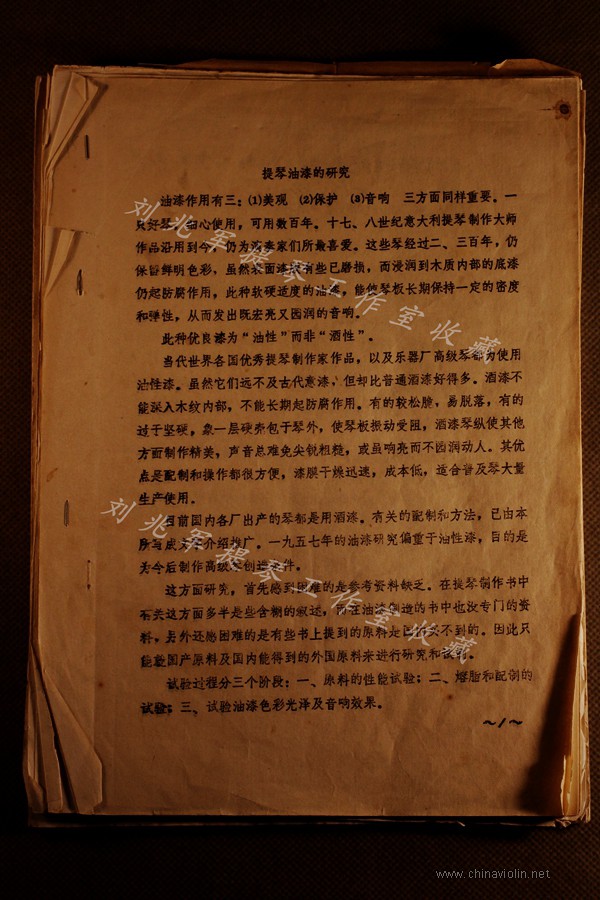 提琴油漆的研究
油漆作用有三：⑴美观 ⑵保护 ⑶音响 三方面同样重要。一
只好琴，细心使用，可用数百年。十七、八世纪意大利提琴制作大师
作品沿用到今，仍为演奏家们所最喜爱。这些琴经过二、三百年，仍
保留鲜明色彩，虽然表面漆有些已磨损，而浸润到木质内部的底漆
仍起防腐作用，此种软硬适度的油漆，能使琴板长期保持一定的密度
和弹性，从而发出既宏亮又园润的音响。
此种优良漆为“油性”而非“酒性”。
当代世界各国优秀提琴制作家作品，以及乐器厂高级琴都为使用
油性漆。虽然它们远不及古代意漆，但却比普通酒漆好得多。酒漆不
能深入木纹内部，不能长期起防腐作用。有的较松脆，易脱落，有的
过于坚硬，象一层硬壳包于琴外，使琴板振动受阻，酒漆琴纵使其他
方面制作精美，声音总难免尖锐粗糙，或虽响亮而不园润动人。其优
点是配制和操作都很方便，漆膜干燥迅速，成本低，适合普及琴大量
生产使用。
目前国内各厂出产的琴都是用酒漆。有关的配制和方法，已由本
所写成文字介绍推广。一九五七年的油漆研究偏重于油性漆，目的是
为今后制作高级琴创造条件。
这方面研究，首先感到困难的是参考资料缺乏。在提琴制作书中
有关这方面多半是些含糊的叙述，而在油漆制造的书中也没专门的资
料，另外还感困难的是有些书上提到的原料是国内买不到的。因此只
能就国产原料及国内能得到的外国原料来进行研究和试制。
试验过程分三个阶段：一、原料的性能试验；二、熔脂和配制的
试验；三、试验油漆色彩光泽及音响效果。
～1～
刘兆军提琴工作室收藏
刘兆军提琴工作室收藏
www.chinaviolin.net